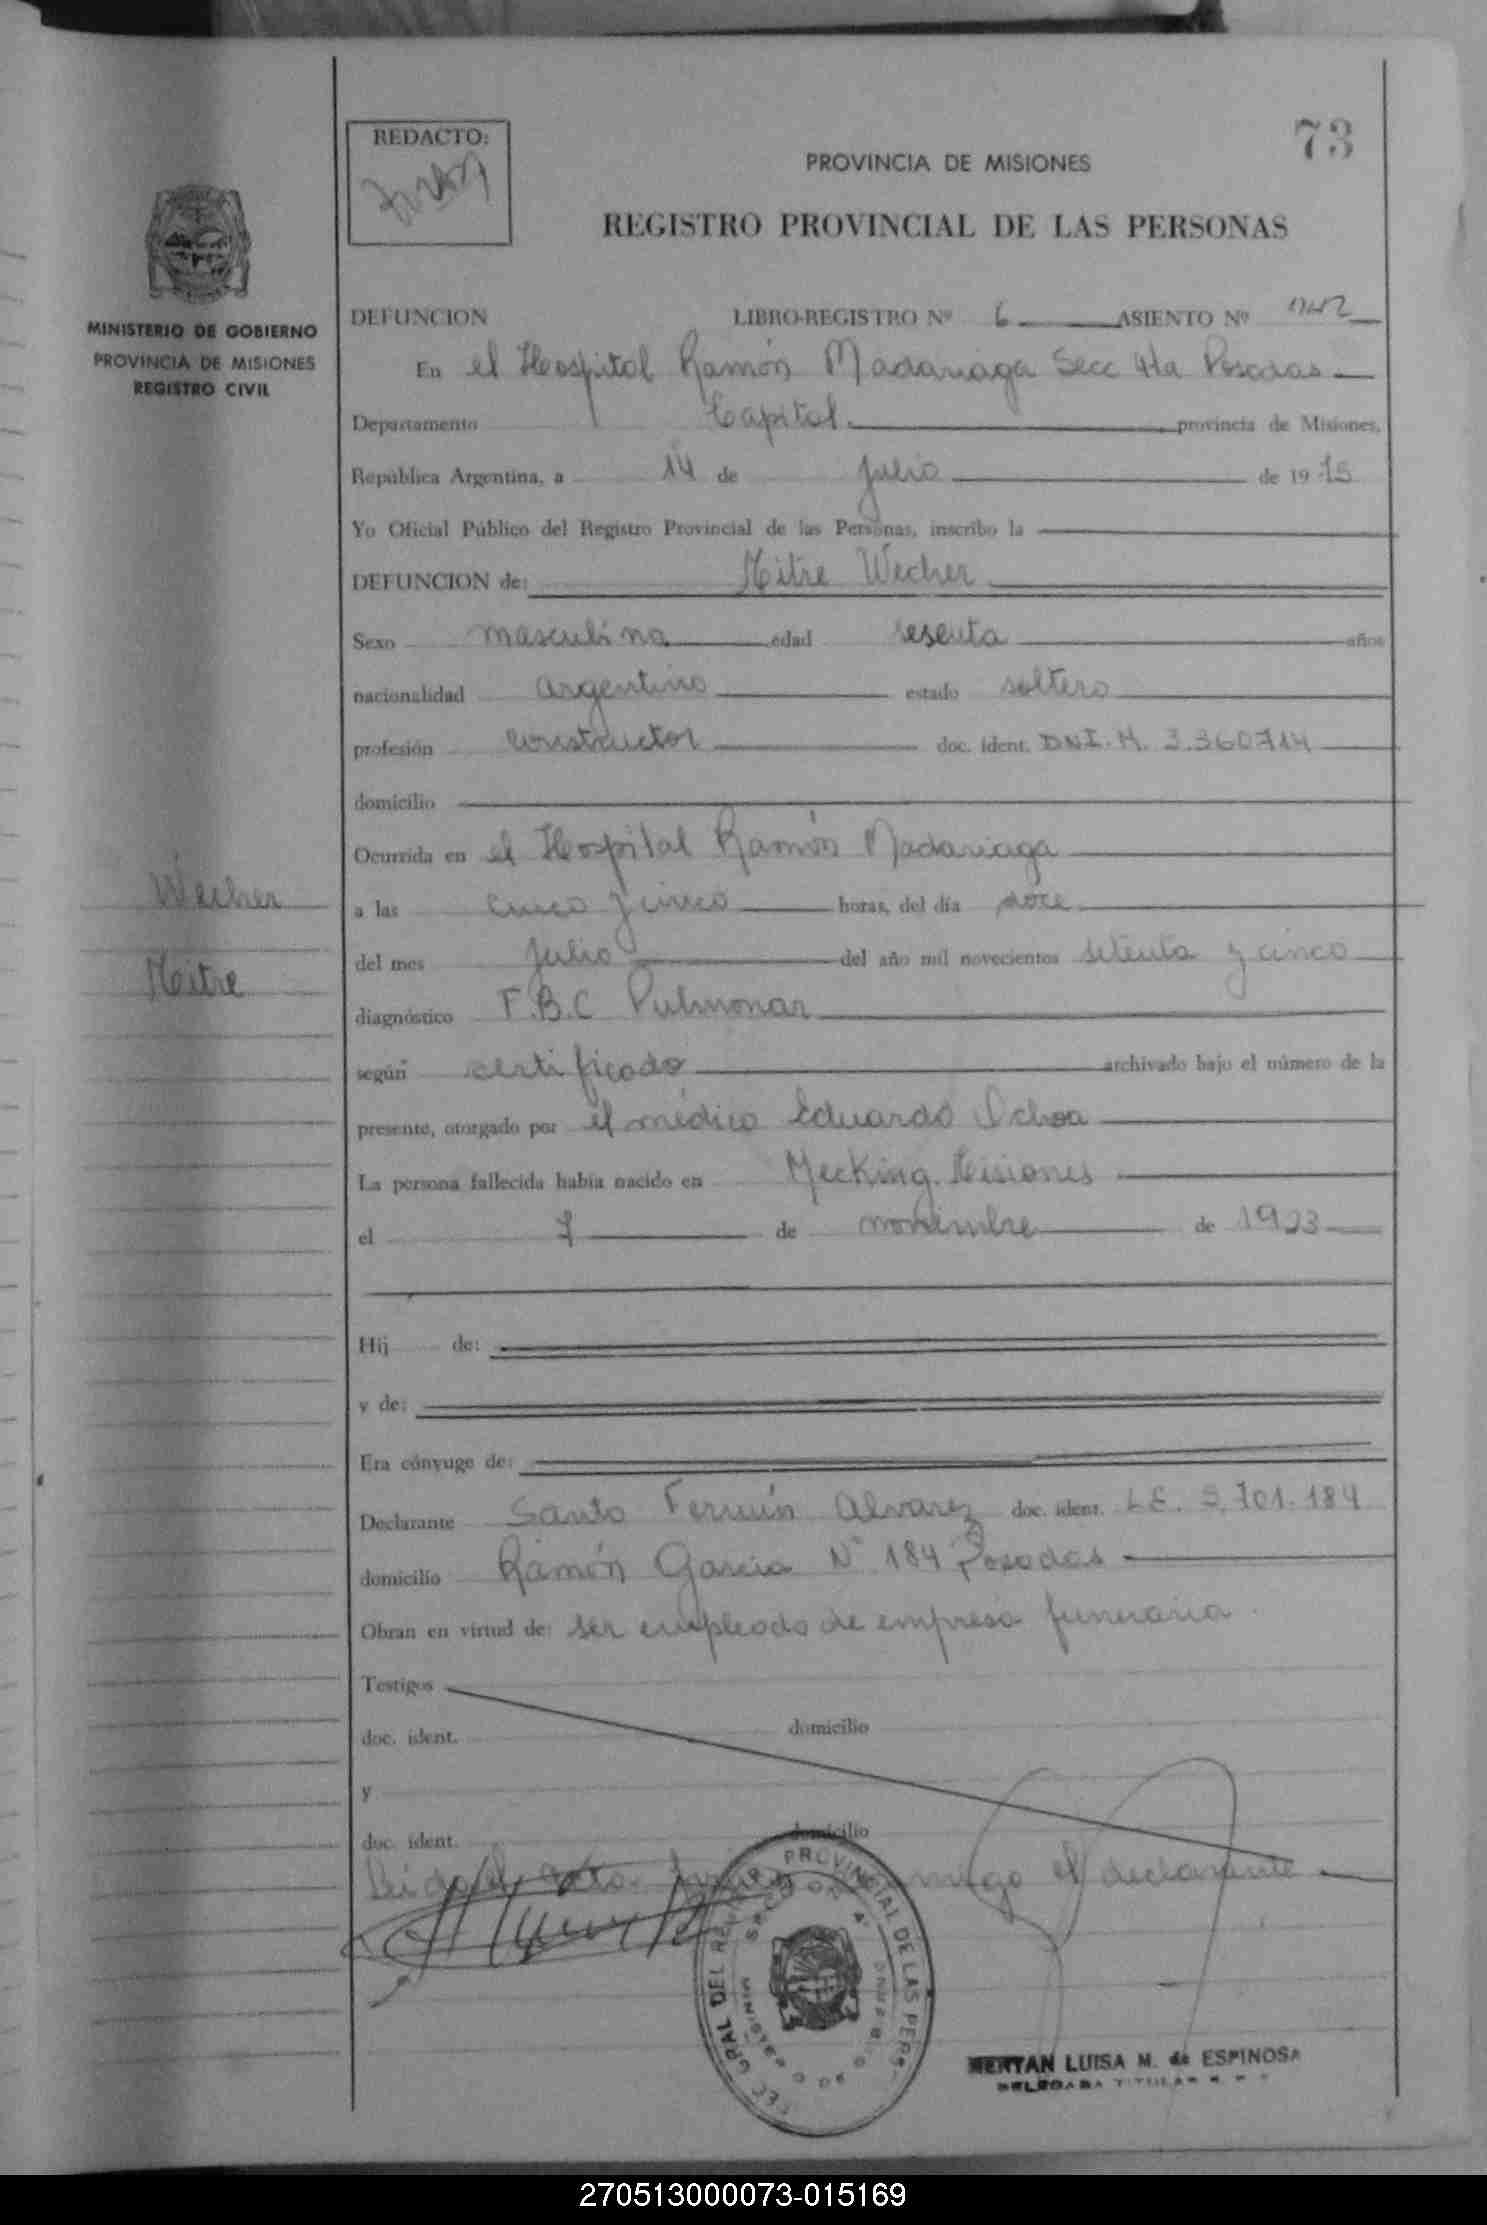 73
REDACTO:
PROVINCIA DE MISIONES
REGISTRO PROVINCIAL DE LAS PERSONAS
MINISTERIO DE GOBIERNO
PROVINCIA DE MISIONES
REGISTRO CIVIL
DEFUNCION LIBRO-REGISTRO Nº 6 ASIENTO Nº
En el Hospital Ramón Madariaga Secc 4ta Posadas
Departamento Capital provincia de Misiones,
República Argentina, a 14 de Julio de 1975
Yo Oficial Público del Registro Provincial de las Personas, inscribo la
DEFUNCION de: Mitre Wecher
Sexo masculino edad sesenta años
nacionalidad argentino estado soltero
profesión constructor doc. ident. DNI. M. 3.360714
domicilio
Ocurrida en el Hospital Ramón Madariaga
Wecher
a las cinco y cinco horas, del día doce
del mes Julio del año mil novecientos setenta y cinco
Mitre
diagnóstico T.B.C Pulmonar
según certificado archivado bajo el número de la
presente, otorgado por el médico Eduardo Ochoa
La persona fallecida había nacido en Mecking. Misiones
el 7 de noviembre de 1923
Hij de:
y de:
Era cónyuge de:
Declarante Santo Fermín Alvarez doc. ident. LE. 5.701.184
domicilio Ramón Garcia Nº 184 Posadas
Obran en virtud de: ser empleado de empresa funeraria.
Testigos
doc. ident. domicilio
y
doc. ident. domicilio
Leida el acta el declarante
PROVINCIAL DE LAS PERS.
LUISA M. de ESPINOSA
270513000073-015169